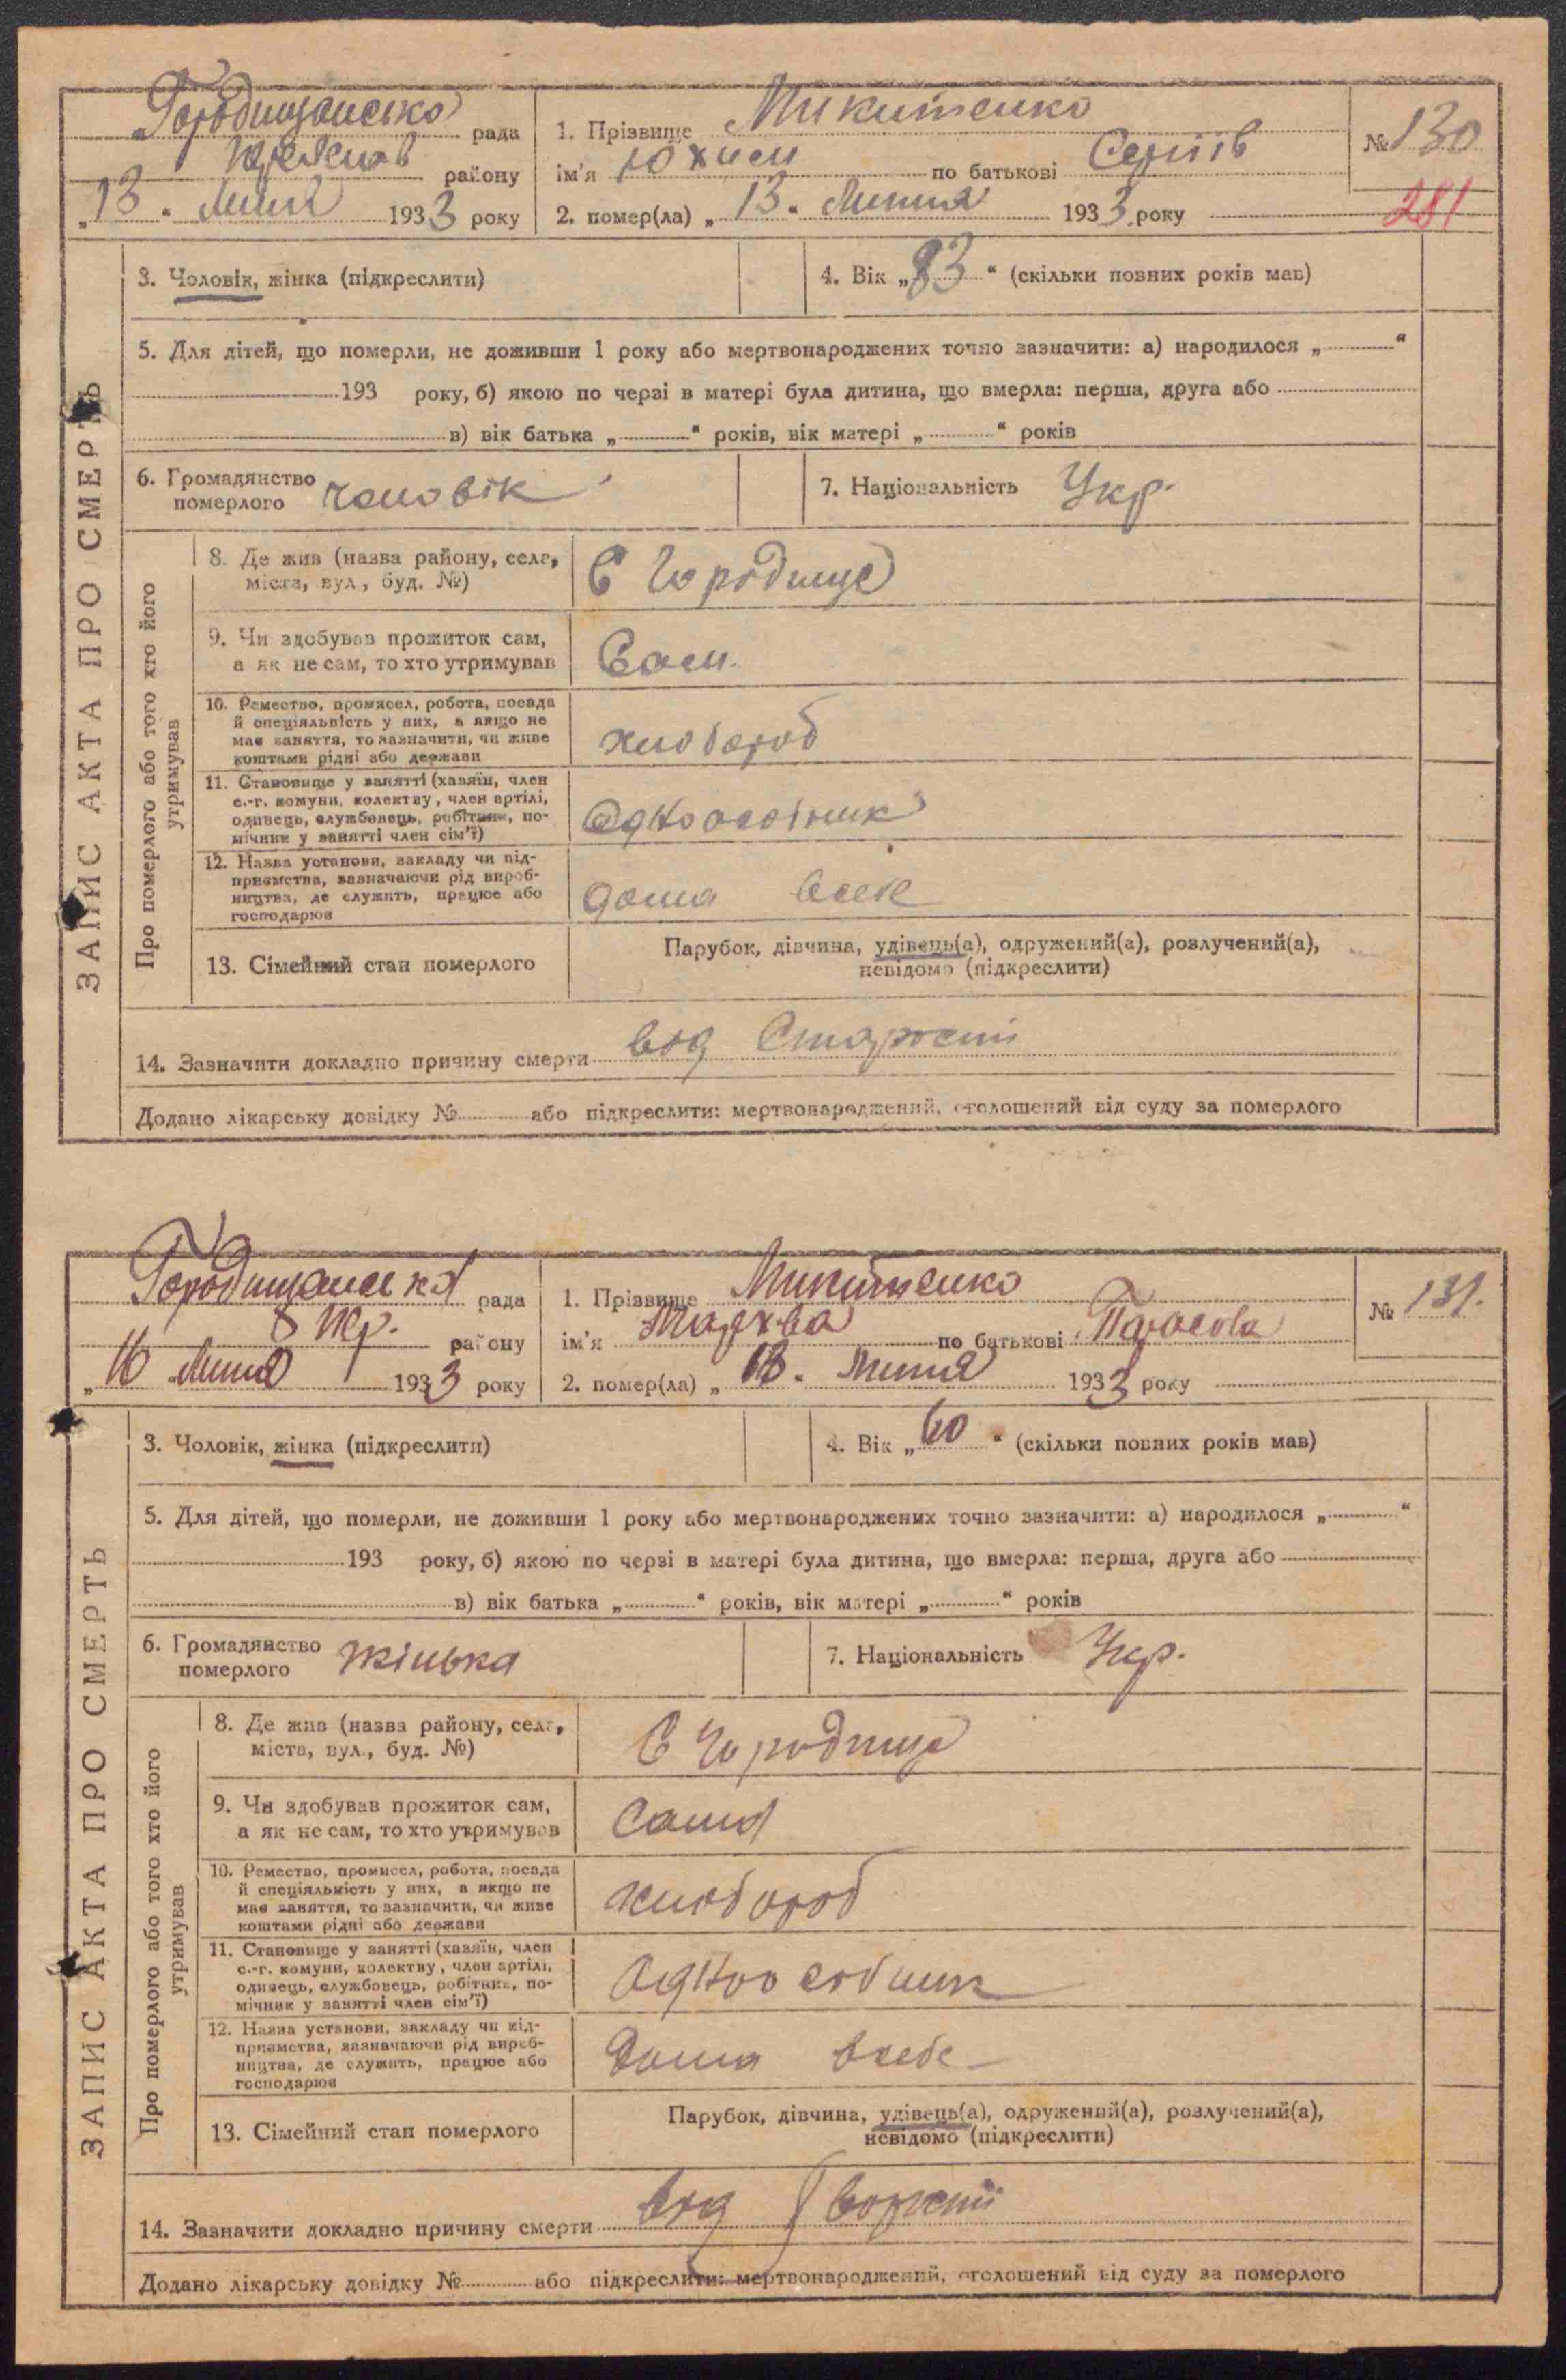 Городищанська рада
району
„13“ Липня 1933 року
1. Прізвище Микитенко
ім'я Юхим по батькові Сергіів
2. помер(ла) „13“ Липня 1933 року
№ 130
281
ЗАПИС АКТА ПРО СМЕРТЬ
3. Чоловік, жінка (підкреслити)
4. Вік „83“ (скільки повних років мав)
5. Для дітей, що померли, не доживши 1 року або мертвонароджених точно зазначити: а) народилося „ “
193 року, б) якою по черзі в матері була дитина, що вмерла: перша, друга або
в) вік батька „ “ років, вік матері „ “ років
6. Громадянство
померлого чоловік
7. Національність Укр.
Про померлого або того хто його
утримував
8. Де жив (назва району, села,
міста, вул., буд. №)
С Городище
9. Чи здобував прожиток сам,
а як не сам, то хто утримував
Сам.
10. Ремество, промисел, робота, посада
й спеціяльність у них, а якщо не
має заняття, то зазначити, чи живе
коштами рідні або держави
хлібороб
11. Становище у занятті (хазяїн, член
с.-г. комуни, колективу, член артілі,
одинець, службовець, робітник, по-
мічник у занятті член сім'ї)
Одноосібник
12. Назва установи, закладу чи під-
приємства, зазначаючи рід вироб-
ництва, де служить, працює або
господарює
дома
13. Сімейний стан померлого
Парубок, дівчина, удівець(а), одружений(а), розлучений(а),
невідомо (підкреслити)
14. Зазначити докладно причину смерти від Старости
Додано лікарську довідку № або підкреслити: мертвонароджений, оголошений від суду за померлого
Городищанська рада
району
„16 Липня 1933 року
1. Прізвище Микитенко
ім'я Мархва по батькові Тарасова
2. помер(ла) „ “ Липня 1933 року
№ 131.
ЗАПИС АКТА ПРО СМЕРТЬ
3. Чоловік, жінка (підкреслити)
4. Вік „60“ (скільки повних років мав)
5. Для дітей, що померли, не доживши 1 року або мертвонароджених точно зазначити: а) народилося „ “
193 року, б) якою по черзі в матері була дитина, що вмерла: перша, друга або
в) вік батька „ “ років, вік матері „ “ років
6. Громадянство
померлого жінька
7. Національність Укр.
Про померлого або того хто його
утримував
8. Де жив (назва району, села,
міста, вул., буд. №)
С Городище
9. Чи здобував прожиток сам,
а як не сам, то хто утримував
Сама
10. Ремество, промисел, робота, посада
й спеціяльність у них, а якщо не
має заняття, то зазначити, чи живе
коштами рідні або держави
хлібороб
11. Становище у занятті (хазяїн, член
с.-г. комуни, колективу, член артілі,
одинець, службовець, робітник, по-
мічник у занятті член сім'ї)
Одноособник
12. Назва установи, закладу чи під-
приємства, зазначаючи рід вироб-
ництва, де служить, працює або
господарює
Дома всебе
13. Сімейний стан померлого
Парубок, дівчина, удівець(а), одружений(а), розлучений(а),
невідомо (підкреслити)
14. Зазначити докладно причину смерти від
Додано лікарську довідку № або підкреслити: мертвонароджений, оголошений від суду за померлого